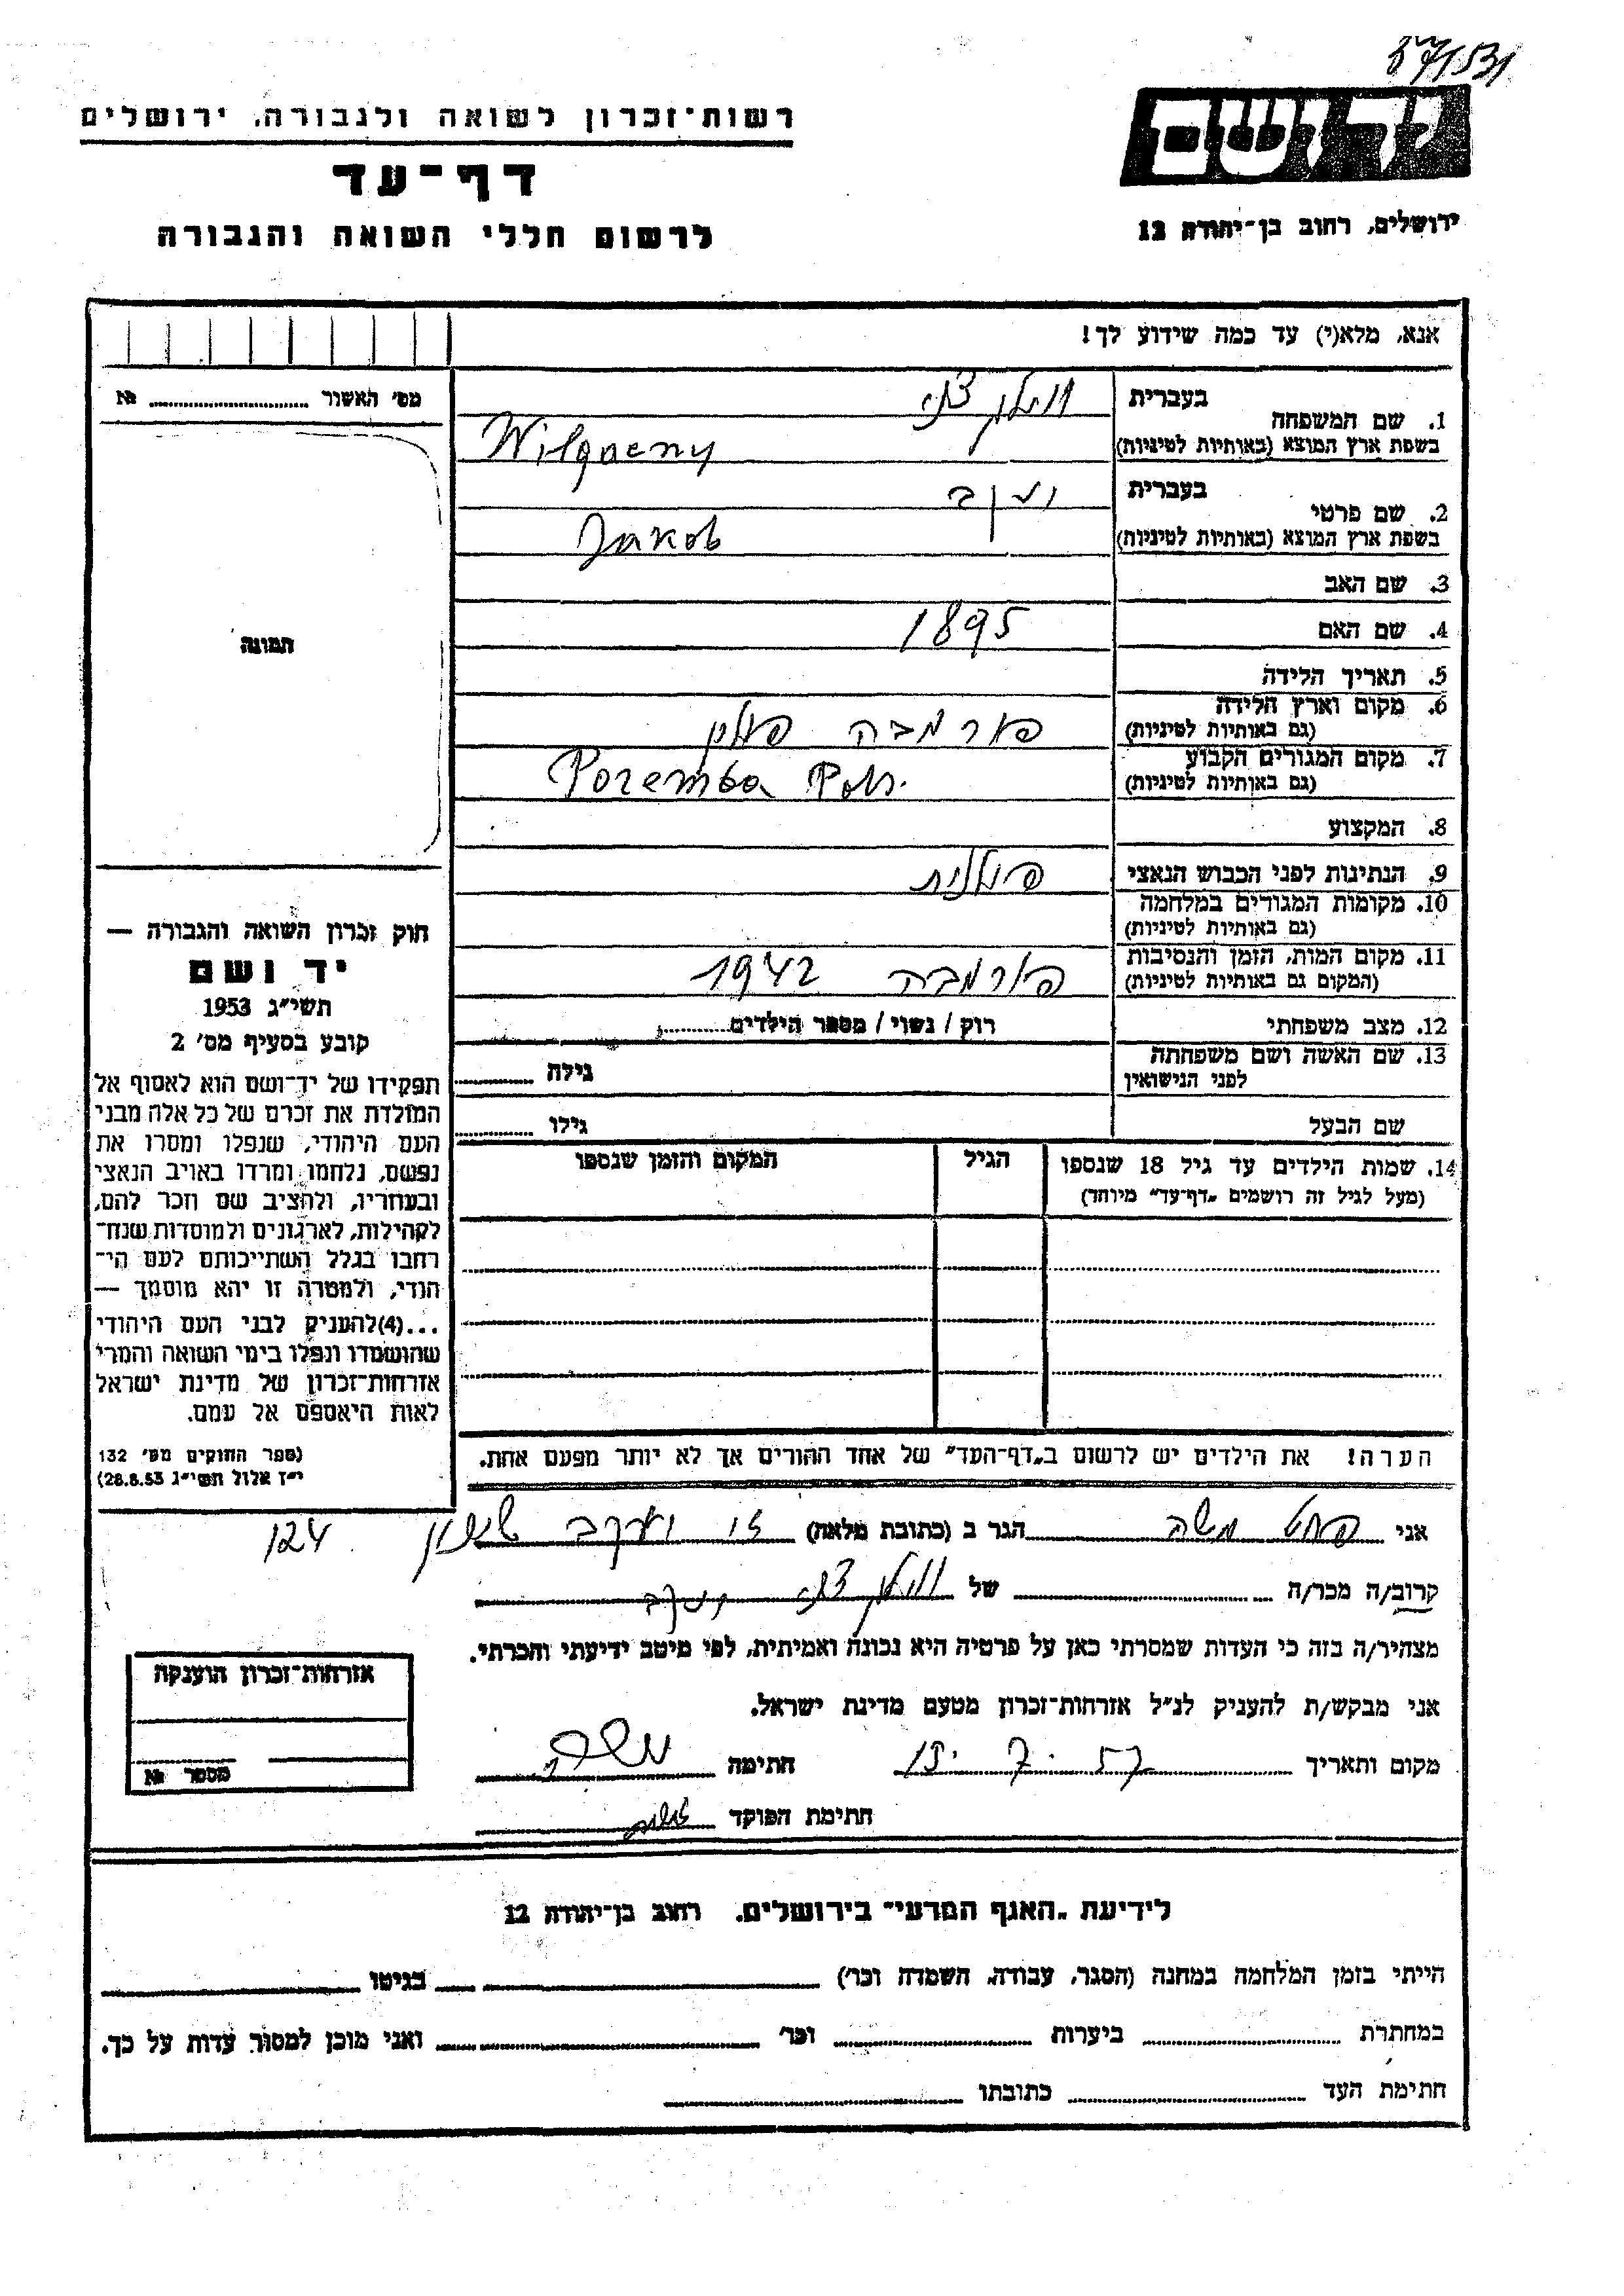 רשות־זכרון לשואה ולגבורה, ירושלים
דף־עד
לרשום חללי השואה והגבורה
ידושם
ירושלים, רחוב בן־יהודה 12
אנא, מלא(י) עד כמה שידוע לך!
מס' האשור № ........
1. שם המשפחה
בעברית
בשפת ארץ המוצא (באותיות לטיניות)
Wilqueny
2. שם פרטי
בעברית יעקב
בשפת ארץ המוצא (באותיות לטיניות) Jakob
3. שם האב
4. שם האם 1895
5. תאריך הלידה
6. מקום וארץ הלידה
(גם באותיות לטיניות) פורמבה פולין
7. מקום המגורים הקבוע
(גם באותיות לטיניות) Poremba Poln.
8. המקצוע
9. הנתינות לפני הכבוש הנאצי פולנית
10. מקומות המגורים במלחמה
(גם באותיות לטיניות)
11. מקום המות, הזמן והנסיבות
(המקום גם באותיות לטיניות) פורמבה 1942
12. מצב משפחתי רוק / נשוי / מספר הילדים........
13. שם האשה ושם משפחתה
לפני הנישואין גילה ........
שם הבעל גילו ........
14. שמות הילדים עד גיל 18 שנספו הגיל המקום והזמן שנספו
(מעל לגיל זה רושמים „דף־עד" מיוחד)
הערה! את הילדים יש לרשום ב„דף־העד" של אחד ההורים אך לא יותר מפעם אחת.
תמונה
חוק זכרון השואה והגבורה —
יד ושם
תשי"ג 1953
קובע בסעיף מס' 2
תפקידו של יד־ושם הוא לאסוף אל
המולדת את זכרם של כל אלה מבני
העם היהודי, שנפלו ומסרו את
נפשם, נלחמו ומרדו באויב הנאצי
ובעוזריו, ולהציב שם וזכר להם,
לקהילות, לארגונים ולמוסדות שנח־
רחבו בגלל השתייכותם לעם הי־
הודי, ולמטרה זו יהא מוסמך —
...(4)להעניק לבני העם היהודי
שהושמדו ונפלו בימי השואה והמרי
אזרחות־זכרון של מדינת ישראל
לאות היאספם אל עמם.
(ספר החוקים מס' 132
י"ז אלול תשי"ג 28.8.53)
אני משה הגר ב (כתובת מלאה) יעקב 124
קרוב/ה מכר/ה של יעקב
מצהיר/ה בזה כי העדות שמסרתי כאן על פרטיה היא נכונה ואמיתית, לפי מיטב ידיעתי והכרתי.
אני מבקש/ת להעניק לנ"ל אזרחות־זכרון מטעם מדינת ישראל.
מקום ותאריך חתימה
חתימת הפוקד
אזרחות־זכרון הוענקה
מספר №
לידיעת „האגף המדעי" בירושלים, רחוב בן־יהודה 12
הייתי בזמן המלחמה במחנה (הסגר, עבודה, השמדה וכו') בגיטו
במחתרת ביערות וכו' ואני מוכן למסור עדות על כך.
חתימת העד כתובתו